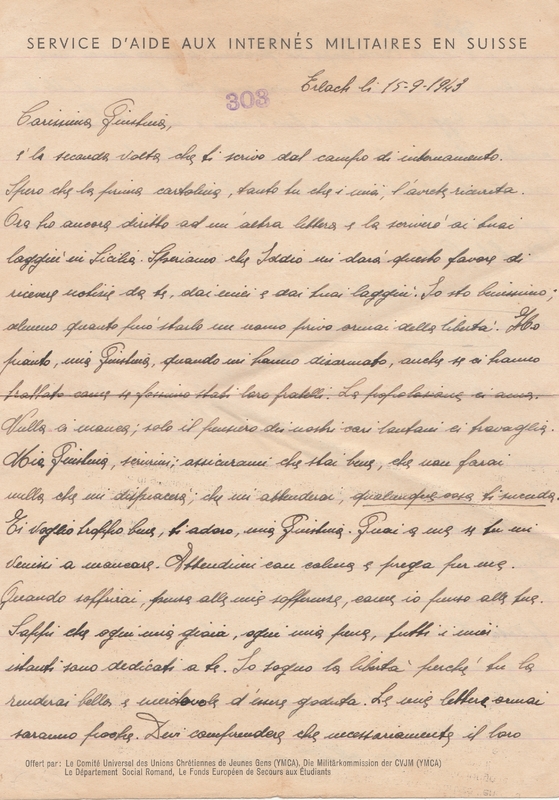 SERVICE D'AIDE AUX INTERNÉS MILITAIRES EN SUISSE
303
Erlach li 15-9-1943
Carissima Giustina,
è la seconda volta che ti scrivo dal campo di internamento.
Spero che la prima cartolina, tanto tu che i miei, l'avrete ricevuta.
Ora ho ancora diritto ad un'altra lettera e la scriverò ai tuoi
laggiù in Sicilia. Speriamo che Iddio mi darà questo favore di
ricevere notizie da te, dai miei e dai tuoi laggiù. Io sto benissimo:
almeno quanto può starlo un uomo privo ormai della libertà. Ho
pianto, mia Giustina, quando mi hanno disarmato, anche se ci hanno
trattato come se fossimo stati loro fratelli. La popolazione ci ama.
Nulla ci manca; solo il pensiero dei nostri cari lontani ci travaglia.
Mia Giustina, scrivimi; assicurami che stai bene, che non farai
nulla che mi dispiacerà, che mi attenderai, qualunque cosa ti succeda.
Ti voglio troppo bene, ti adoro, mia Giustina. Guai a me se tu mi
venissi a mancare. Attendimi con calma e prega per me.
Quando soffrirai, pensa alla mia sofferenza, come io penso alla tua.
Sappi che ogni mia gioia, ogni mia pena, tutti i miei
istanti sono dedicati a te. Io sogno la libertà perché tu la
renderai bella e meritevole d'essere goduta. Le mie lettere ormai
saranno poche. Devi comprendere che necessariamente il loro
Offert par: Le Comité Universel des Unions Chrétiennes de Jeunes Gens (YMCA), Die Militärkommission der CVJM (YMCA)
Le Département Social Romand, Le Fonds Européen de Secours aux Étudiants